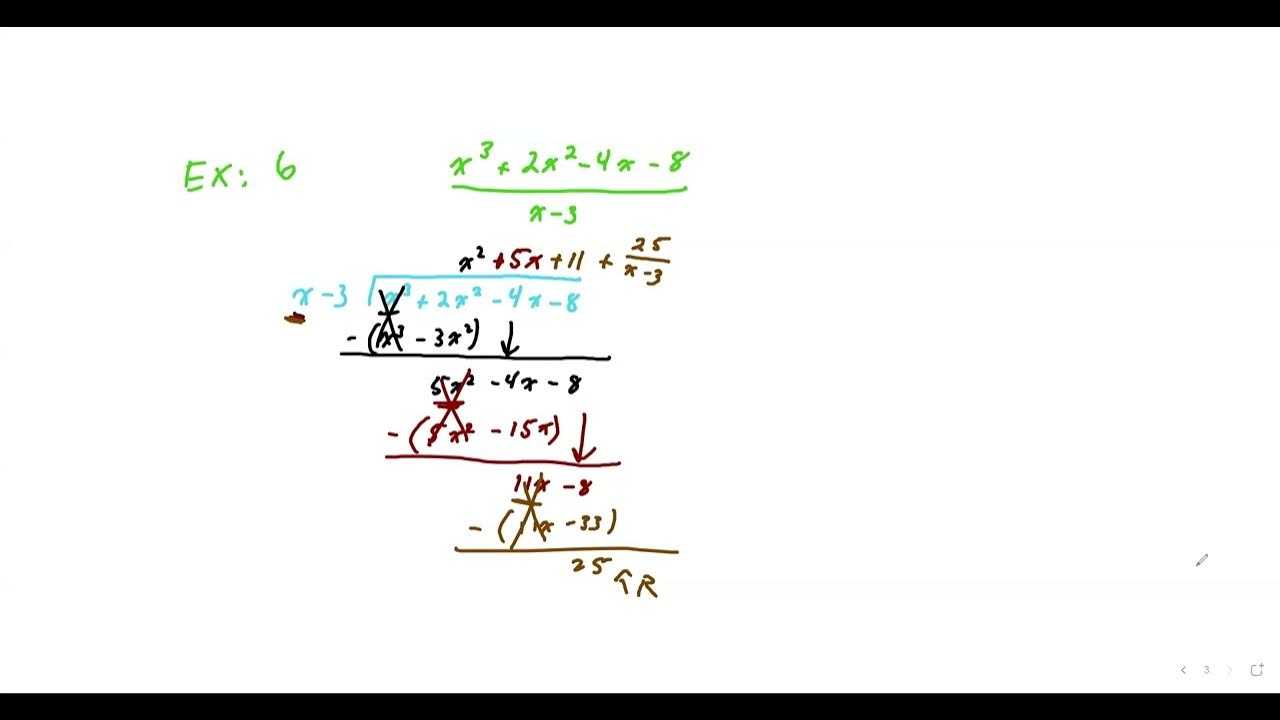 EX: 6
x³ + 2x² - 4x - 8
x - 3
x² + 5x + 11 + 25
x - 3
x - 3 x³ + 2x² - 4x - 8
- (x³ - 3x²) ↓
5x² - 4x - 8
- (5x² - 15x) ↓
11x - 8
- (11x - 33)
25 ↑ R
3